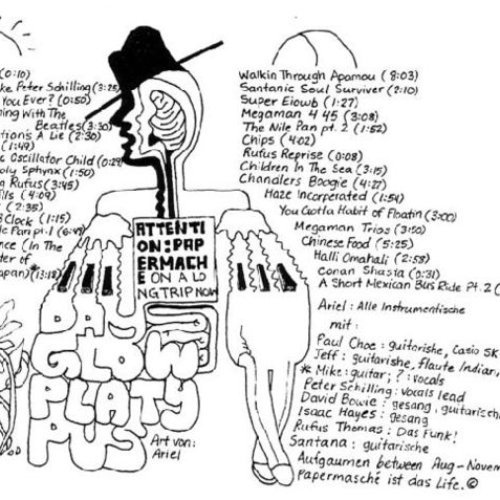 (0:10)
ke Peter Schilling (3:25)
You Ever? (0:50)
ning With The
Beatles (3:30)
tions A Lie (2:30)
(1:49)
c Oscillator Child (0:29)
oly Sphynx (1:50)
g Rufus (3:45)
ills (4:09)
(2:35)
Clock (1:15)
le Pan pt. 1 (6:49)
nce (In The
ter of
apan) *(13:18)
ATTENTI
ON:PAP
ERMACH
E ON A LO
NG TRIP NOW
DAY
GLOW
PLATY
PUS
Art von:
Ariel
Walkin Through Apomou (8:03)
Santanic Soul Surviver (2:10)
Super Eiowb (1:27)
Megaman 4 45 (3:08)
The Nile Pan pt. 2 (1:52)
Chips (4:02)
Rufus Reprise (0:08)
Children In The Sea (3:15)
Chandlers Boogie (4:27)
Haze Incorperated (1:54)
You Gotta Habit of Floatin (3:00)
Megaman Trios (3:50)
Chinese Food (5:25)
Halli Omahali (2:58)
Conan Shasta (0:31)
A Short Mexican Bus Ride Pt. 2 (
Ariel: Alle Instrumentische
mit:
Paul Choe: guitarishe, Casio SK
Jeff: guitarishe, flaute Indian,
* Mike: guitar; ?: vocals
Peter Schilling: vocals lead
David Bowie: gesang, guitarisch
Isaac Hayes: gesang
Rufus Thomas: Das Funk!
Santana: guitarische
Aufgaumen between Aug-Novem
Papermasché ist das Life. ©